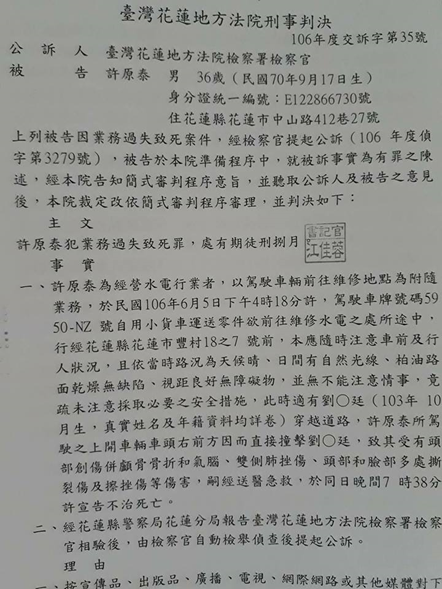 臺灣花蓮地方法院刑事判決
106年度交訴字第35號
公訴人 臺灣花蓮地方法院檢察署檢察官
被告 許原泰 男 36歲（民國70年9月17日生）
身分證統一編號：E122866730號
住花蓮縣花蓮市中山路412巷27號
上列被告因業務過失致死案件，經檢察官提起公訴（106 年度偵
字第3279號），被告於本院準備程序中，就被訴事實為有罪之陳
述，經本院告知簡式審判程序意旨，並聽取公訴人及被告之意見
後，本院裁定改依簡式審判程序審理，並判決如下：
主文
許原泰犯業務過失致死罪，處有期徒刑捌月
書記官
江佳蓉
事實
一、許原泰為經營水電行業者，以駕駛車輛前往維修地點為附隨
業務，於民國106年6月5日下午4時18分許，駕駛車牌號碼59
50-NZ 號自用小貨車運送零件欲前往維修水電之處所途中，
行經花蓮縣花蓮市豐村18之7 號前，本應隨時注意車前及行
人狀況，且依當時路況為天候晴、日間有自然光線、柏油路
面乾燥無缺陷、視距良好無障礙物，並無不能注意情事，竟
疏未注意採取必要之安全措施，此時適有劉〇廷（103年 10
月生，真實姓名及年籍資料均詳卷）穿越道路，許原泰所駕
駛之上開車輛車頭右前方因而直接撞擊劉〇廷，致其受有頭
部創傷併顱骨骨折和氣腦、雙側肺挫傷、頭部和臉部多處撕
裂傷及擦挫傷等傷害，嗣經送醫急救，於同日晚間7 時38分
許宣告不治死亡。
二、經花蓮縣警察局花蓮分局報告臺灣花蓮地方法院檢察署檢察
官相驗後，由檢察官自動檢舉偵查後提起公訴。
理由
一、按宣傳品、出版品、廣播、電視、網際網路或其他媒體對下